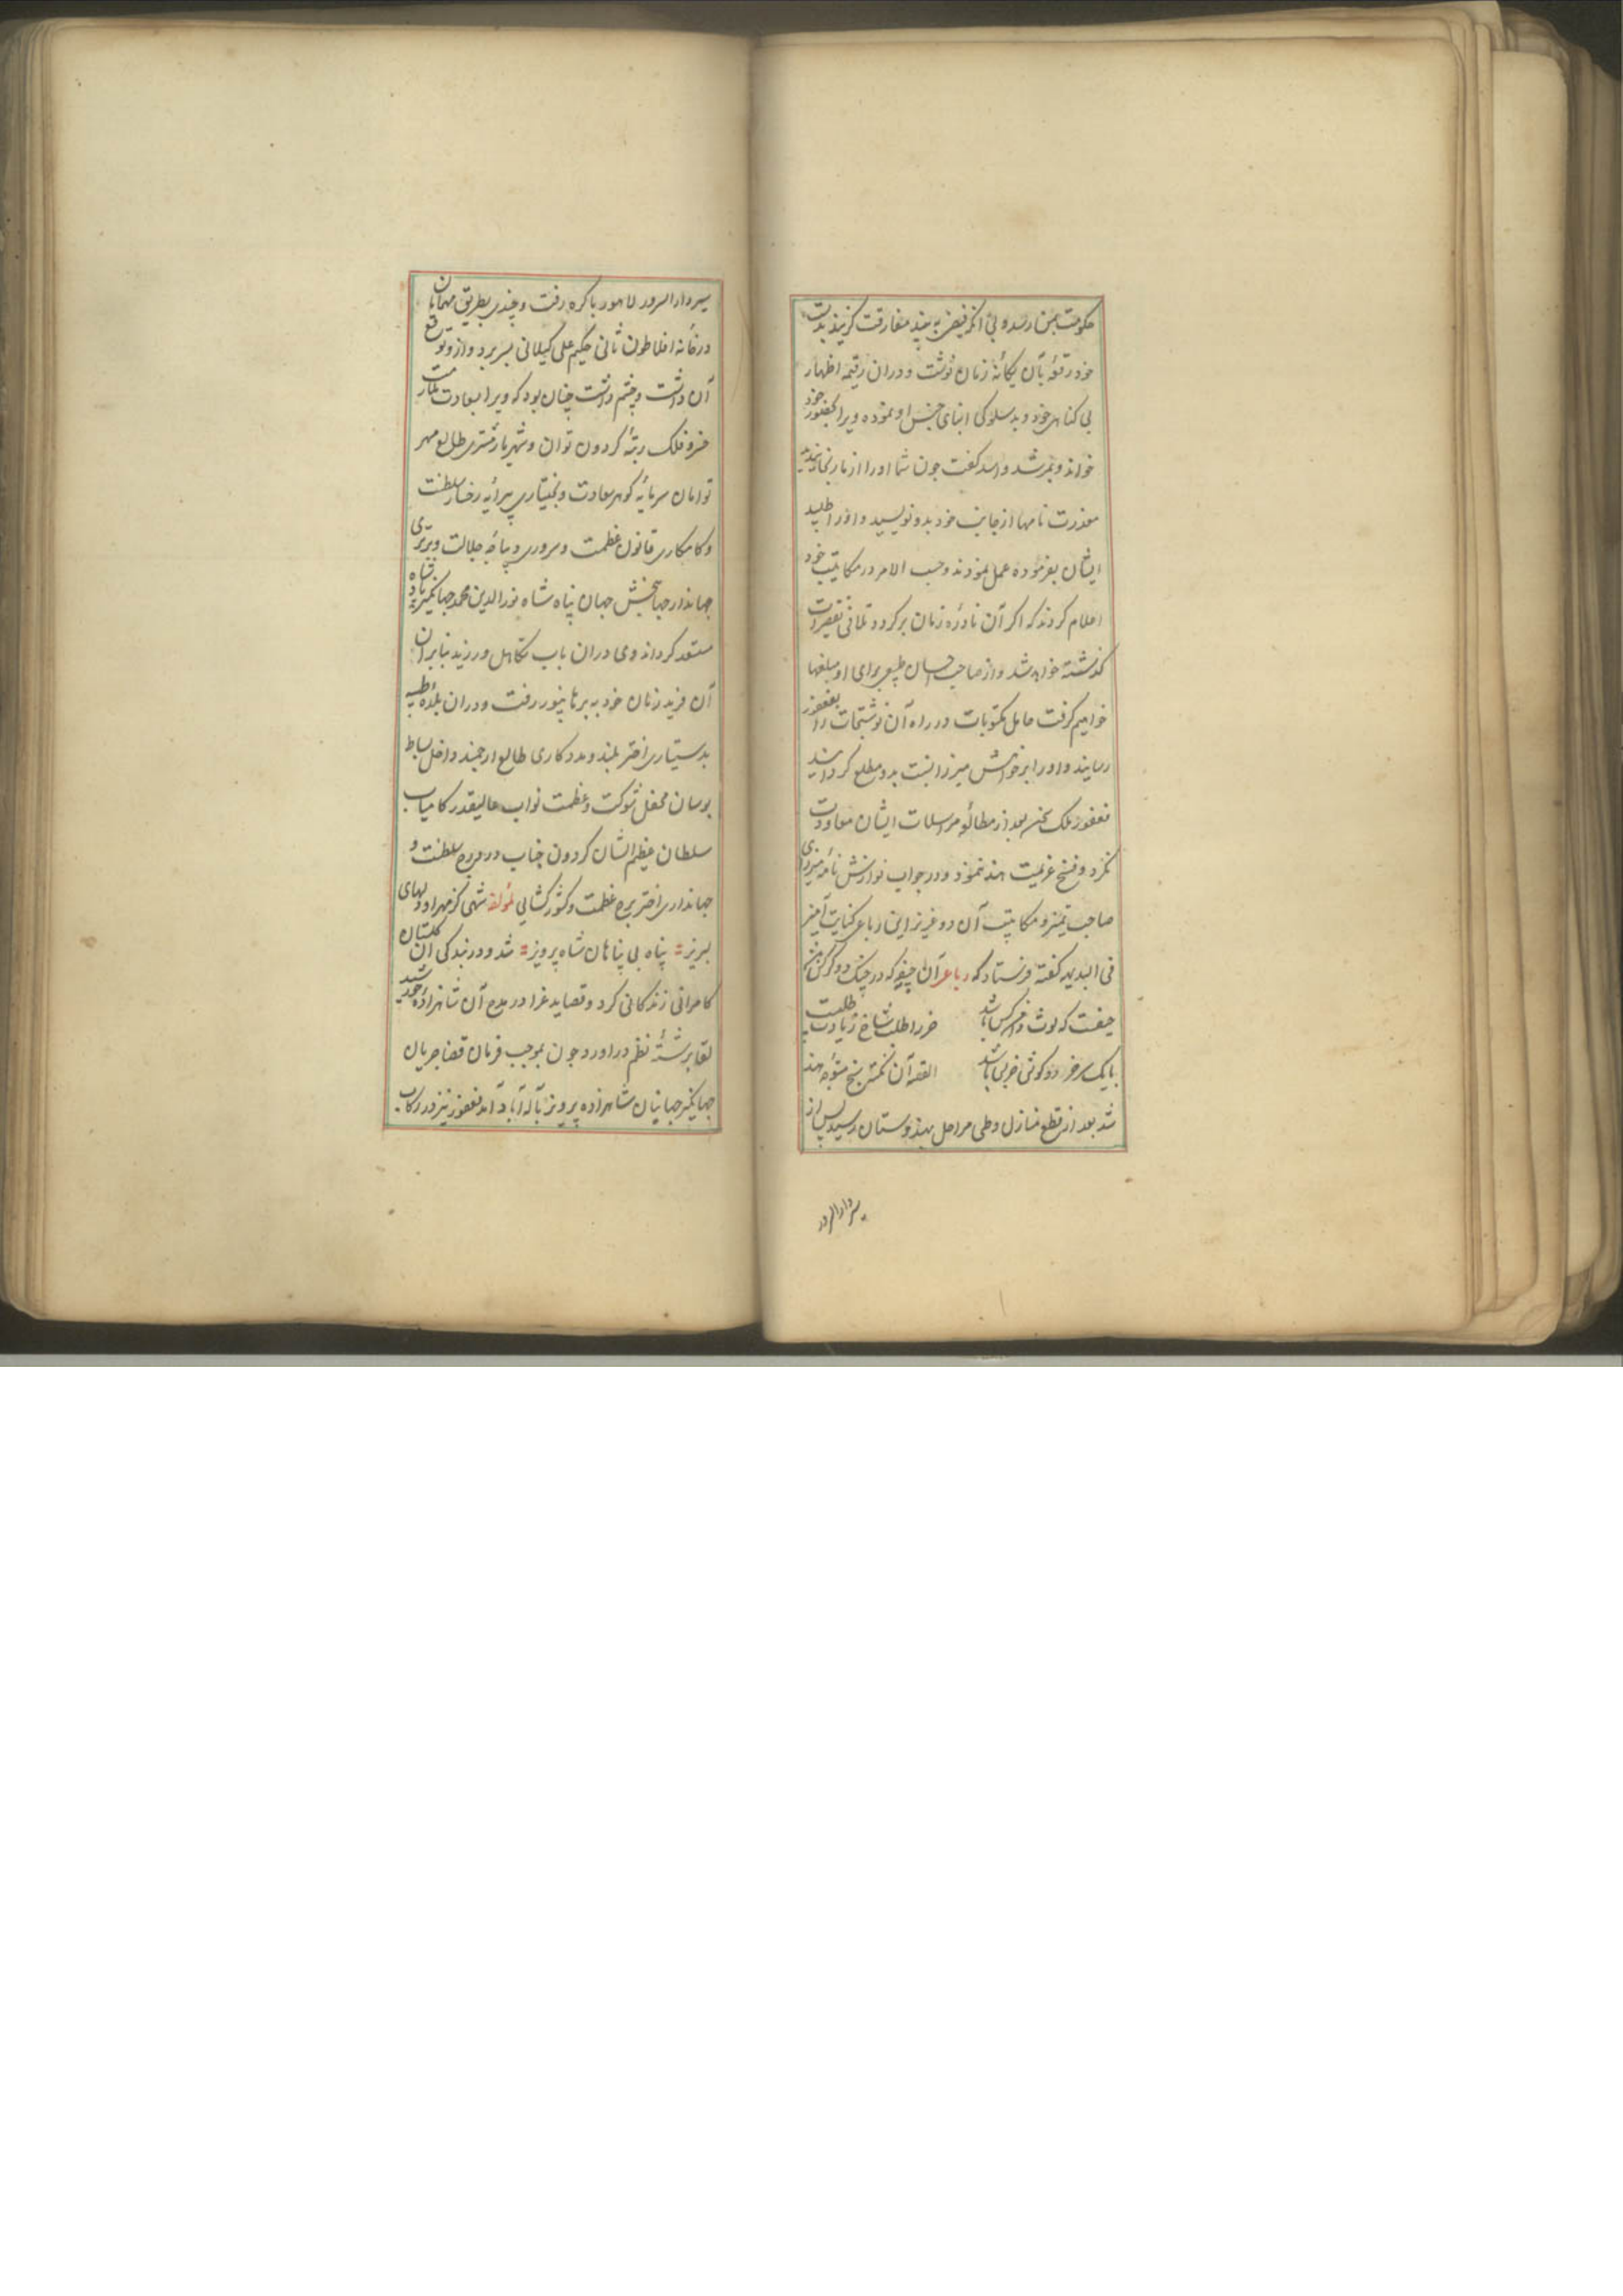 حکومت بمن نارسیده بی آنکه فیض به بیند مفارقت کزیند بدست
خود رقعهٔ بآن یکانهٔ زمان نوشت و دران رقیمه اظهار
بی کناهی خود و بدسلوکی ابنای جنس او نموده ویرا بحضور خود
خواند و بمرشد و اسد کفت چون شما او را از ما رنجانیدید
معذرت نامها از جانب خود بدو نویسید و او را طلبید
ایشان بفرموده عمل نمودند و حسب الامر در مکاتیب خود
اعلام کردند که اکر آن نادرهٔ زمان برکردد تلافی تقصیرات
کذشته خواهد شد و از صاحب احسان طبیعی برای او مبلغها
خواهیم کرفت حامل مکتوبات در راه آن نوشتجات را بفغفور
رسانید و او را بر خواهش میرزا نسبت بدو مطلع کردانید
فغفور ملک سخن بعد از مطالعهٔ مراسلات ایشان معاودت
نکرد و فسخ عزیمت هند ننمود و در جواب نوازش نامهٔ میرزای
صاحب تمیز و مکاتیب آن دو عزیز این رباعی کنایت آمیز
فی البدیهه کفته فرستاد که رباعی آن جیفه که در چنک دو کرکس باشد
حیفست که لوث دامن کس باشد خر را طلب شاخ زیادت طلبیست
با یک سر خر دو کوش خر بس باشد القصه آن نکته سنج متوجه هند
شد بعد از قطع منازل و طی مراحل بهندوستان رسید پس از
سیر دار السرور
سیر دار السرور لاهور باکره رفت و چندی بطریق مهمانان
در خانهٔ افلاطون ثانی حکیم علی کیلانی بسر برد و ازو توقع
آن داشت و چشم داشت چنان بود که ویرا بسعادت ملازمت
خسرو فلک رتبهٔ کردون توان و شهریار مشتری طالع مهر
توامان سرمایه کوهر سعادت و بختیاری پیرایه رخسار سلطنت
و کامکاری قانون عظمت و سروری دیباچه جلالت و برتری
جهاندار جهانبخش جهان پناه شاه نور الدین محمد جهانکیر پادشاه
مستعد کرداند وی دران باب تکاهل ورزید بنابران
آن فرید زمان خود به برهانپور رفت و دران بلدهٔ طیبه
بدستیاری اختر بلند و مددکاری طالع ارجمند داخل بساط
بوسان محفل شوکت و عظمت نواب عالیقدر کامیاب
سلطان عظیم الشان کردون جناب در درج سلطنت و
جهانداری اختر برج عظمت و کشورکشایی لمؤلفه شهی کز مهر او دلهای
لبریز پناه بی پناهان شاه پرویز شد و در بندکی آن کلستان
کامرانی زندکانی کرد و قصاید غرا در مدح آن شاهزادهٔ خورشید
لقا برشتهٔ نظم دراورد چون بموجب فرمان قضا جریان
جهانکیر جهانیان شاهزاده پرویز بآله آباد آمد فغفور نیز در رکاب